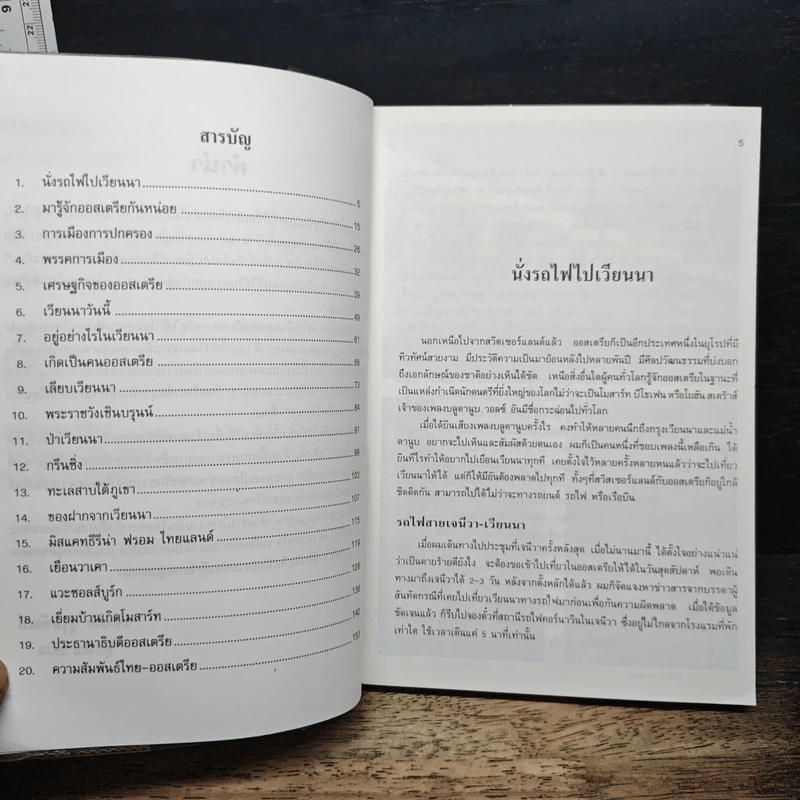 สารบัญ
1. นั่งรถไฟไปเวียนนา 5
2. มารู้จักออสเตรียกันหน่อย 15
3. การเมืองการปกครอง 26
4. พรรคการเมือง 32
5. เศรษฐกิจของออสเตรีย 39
6. เวียนนาวันนี้ 49
7. อยู่อย่างไรในเวียนนา 61
8. เกิดเป็นคนออสเตรีย 66
9. เลียบเวียนนา 73
10. พระราชวังเชินบรุนน์ 84
11. ป่าเวียนนา 91
12. กรีนซิ่ง 98
13. ทะเลสาบใต้ภูเขา 103
14. ของฝากจากเวียนนา 107
15. มิสแคทธีรีน่า ฟรอม ไทยแลนด์ 115
16. เยือนวาเคา 119
17. แวะซอลส์บูร์ก 126
18. เยี่ยมบ้านเกิดโมสาร์ท 136
19. ประธานาธิบดีออสเตรีย 142
20. ความสัมพันธ์ไทย-ออสเตรีย 153
5
นั่งรถไฟไปเวียนนา
นอกเหนือไปจากสวิตเซอร์แลนด์แล้ว ออสเตรียก็เป็นอีกประเทศหนึ่งในยุโรปที่มี
ทิวทัศน์สวยงาม มีประวัติความเป็นมาย้อนหลังไปหลายพันปี มีศิลปวัฒนธรรมที่บ่งบอก
ถึงเอกลักษณ์ของชาติอย่างเห็นได้ชัด เหนือสิ่งอื่นใดผู้คนทั่วโลกรู้จักออสเตรียในฐานะที่
เป็นแหล่งกำเนิดนักดนตรีที่ยิ่งใหญ่ของโลกไม่ว่าจะเป็นโมสาร์ท บีโธเฟ่น หรือโยฮัน สเตร๊าส์
เจ้าของเพลงบลูดานูบ วอลซ์ อันมีชื่อกระฉ่อนไปทั่วโลก
เมื่อได้ยินเสียงเพลงบลูดานูบครั้งไร คงทำให้หลายคนนึกถึงกรุงเวียนนาและแม่น้ำ
ดานูบ อยากจะไปเห็นและสัมผัสด้วยตนเอง ผมก็เป็นคนหนึ่งที่ชอบเพลงนี้เหลือเกิน ได้
ยินทีไรทำให้อยากไปเยือนเวียนนาทุกที เคยตั้งใจไว้หลายครั้งหลายหนแล้วว่าจะไปเที่ยว
เวียนนาให้ได้ แต่ก็ให้มีอันต้องพลาดไปทุกที ทั้งๆที่สวิสเซอร์แลนด์กับออสเตรียก็อยู่ใกล้
ชิดติดกัน สามารถไปได้ไม่ว่าจะทางรถยนต์ รถไฟ หรือเรือบิน
รถไฟสายเจนีวา-เวียนนา
เมื่อผมเดินทางไปประชุมที่เจนีวาครั้งหลังสุด เมื่อไม่นานมานี้ ได้ตั้งใจอย่างแน่วแน่
ว่าเป็นตายร้ายดียังไง จะต้องขอเข้าไปเที่ยวในออสเตรียให้ได้ในวันสุดสัปดาห์ พอเดิน
ทางมาถึงเจนีวาได้ 2-3 วัน หลังจากตั้งหลักได้แล้ว ผมก็จัดแจงหาข่าวสารจากบรรดาผู้
สันทัดกรณีที่เคยไปเที่ยวเวียนนาทางรถไฟมาก่อนเพื่อกันความผิดพลาด เมื่อได้ข้อมูล
ชัดเจนแล้ว ก็รีบไปจองตั๋วที่สถานีรถไฟคอร์นาวินในเจนีวา ซึ่งอยู่ไม่ไกลจากโรงแรมที่พัก
เท่าใด ใช้เวลาเดินแค่ 5 นาทีเท่านั้น